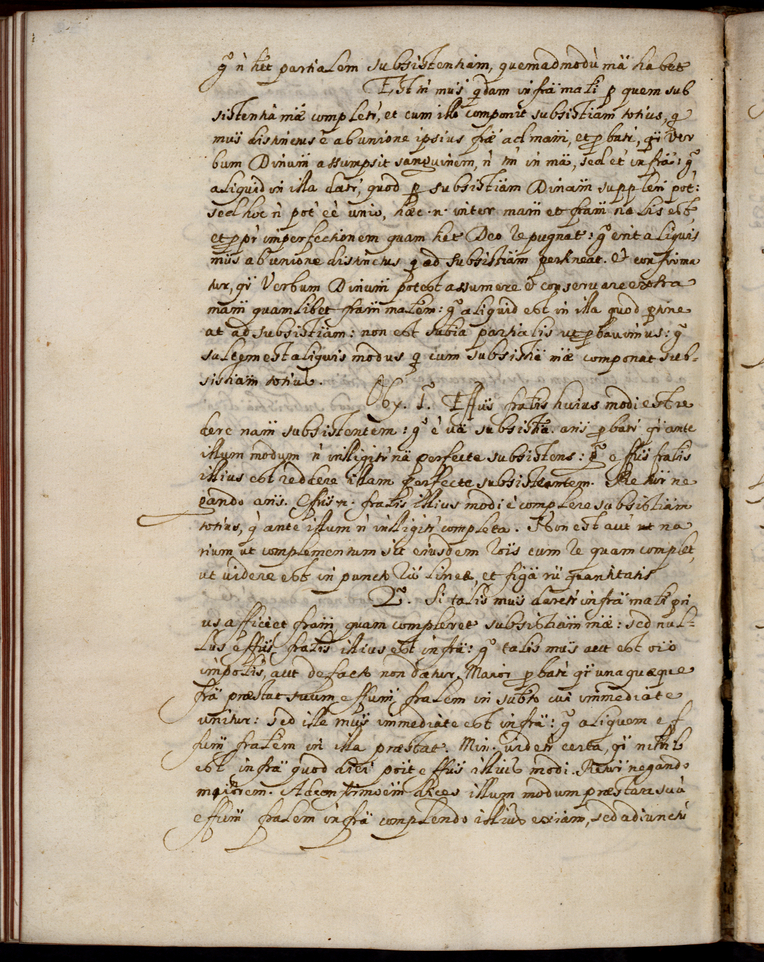 q̃ ñ hẽt partialem subsistentiam, quemadmodũ mã habet
Est tñ mũs qdam in frã mati p quem sub
sistentia mæ completr̃, et cum illo componit subsistiam totius, q
mus distinctus e ab unione ipsius fræ ad mam, et pbatr̃, qi Ver
bum Divinũ assumpsit sanguinem, ñ tm̃ in mã, sed et in frã: q̃
aliquid in illa datr̃, quod p subsistiam Divinam suppleri pot:
sed hoc ñ pot eè unio, hæc .n. inter mam et fram nalis est
et ppr̃ imperfectionem quam het Deo repugnat: q̃ erit aliquis
mũs ab unione distinctus q ad subsistiam pertineat. Et confirma
tur, qi Verbum Divinũ potest assumere & conservare extra
mam quamlibet fram matem: q̃ aliquid est in illa quod ptine
at ad subsistiam: non est subtia partialis ut pbavimus: q̃
saltem est aliquis modus q cum subsistia mæ componat sub-
sistiam totius.
Obj. 1.º Effũs fralis huius modi est re
dere nam subsistentem: q̃ ẽ uã subsistã. ans pbatr̃ qi ante
illum modum ñ intlligitr̃ nã perfecte subsistens: q̃ effũs fralis
illius est reddere illam perfecte subsistentem. Retur ne
gando ans. Effũs .n. fralis illius modi è complere subsistiam
totius, q̃ ante illum ñ intlligitr̃ completa. Non est aut na
rium ut complementum sit eiusdem rõis cum re quam complet,
ut videre est in puncto rũ lineæ, et figã rũ quantitatis
2.º Si talis mũs daretr̃ in frã mati pri
us afficiet fram quam compleret subsistiam mæ: sed nul-
lus effũs fralis illius est in frã: q̃ talis mũs aut est oĩo
impõlis, aut de facto non datur. Maior pbatr̃ qi unaquæque
frã præstat suum effum fralem in subto cui immediate
unitur: sed ille mũs immediate est in frã: q̃ aliquem ef
fum fralem in illa præstat. Min. videtr̃ certa, qi nihil
est in frã quod dici poit effũs illius modi. Retur negando
maiorem. Ad eam dices illum modum præstare suũ
effum fralem in frã complendo illius exiam, sed adiuncti